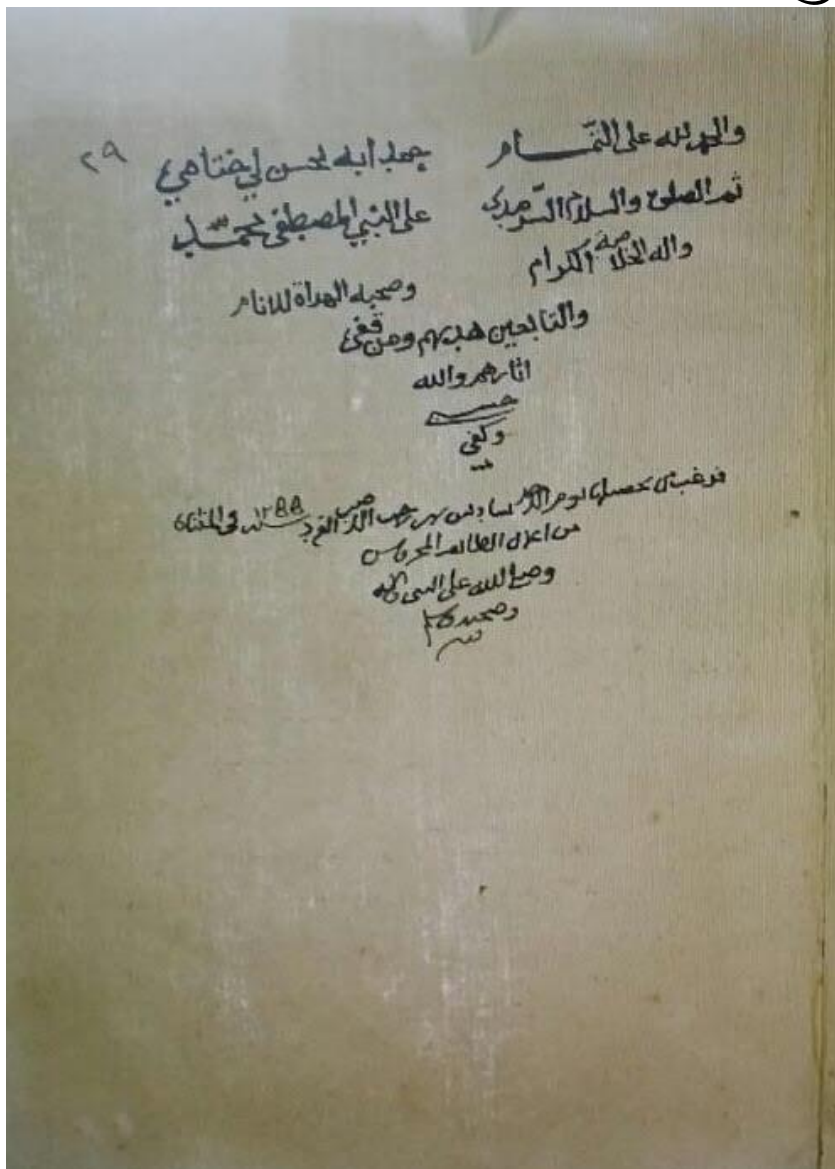 والحمد لله على التمام حمدا به لحسن لي ختامي ٢٩
ثم الصلوة والسلام السرمدي على النبي المصطفى محمد
واله الخلاصة الكرام وصحبه الهداة للانام
والتابعين هديهم ومن قفى
اثارهم والله
حسبي
وكفى
فرغت من تحصيلها يوم السادس رجب الفرد سنة ١٢٨٨ في
من اعمال المحروس
وصلى الله على النبي واله
وصحبه وسلم